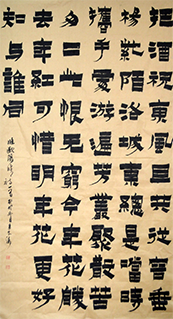 把酒祝東風且共從容垂
楊紫陌洛城東總是當時
攜手處游遍芳叢聚散苦
匆匆此恨无窮今年花勝
去年紅可惜明年花更好
知與誰同